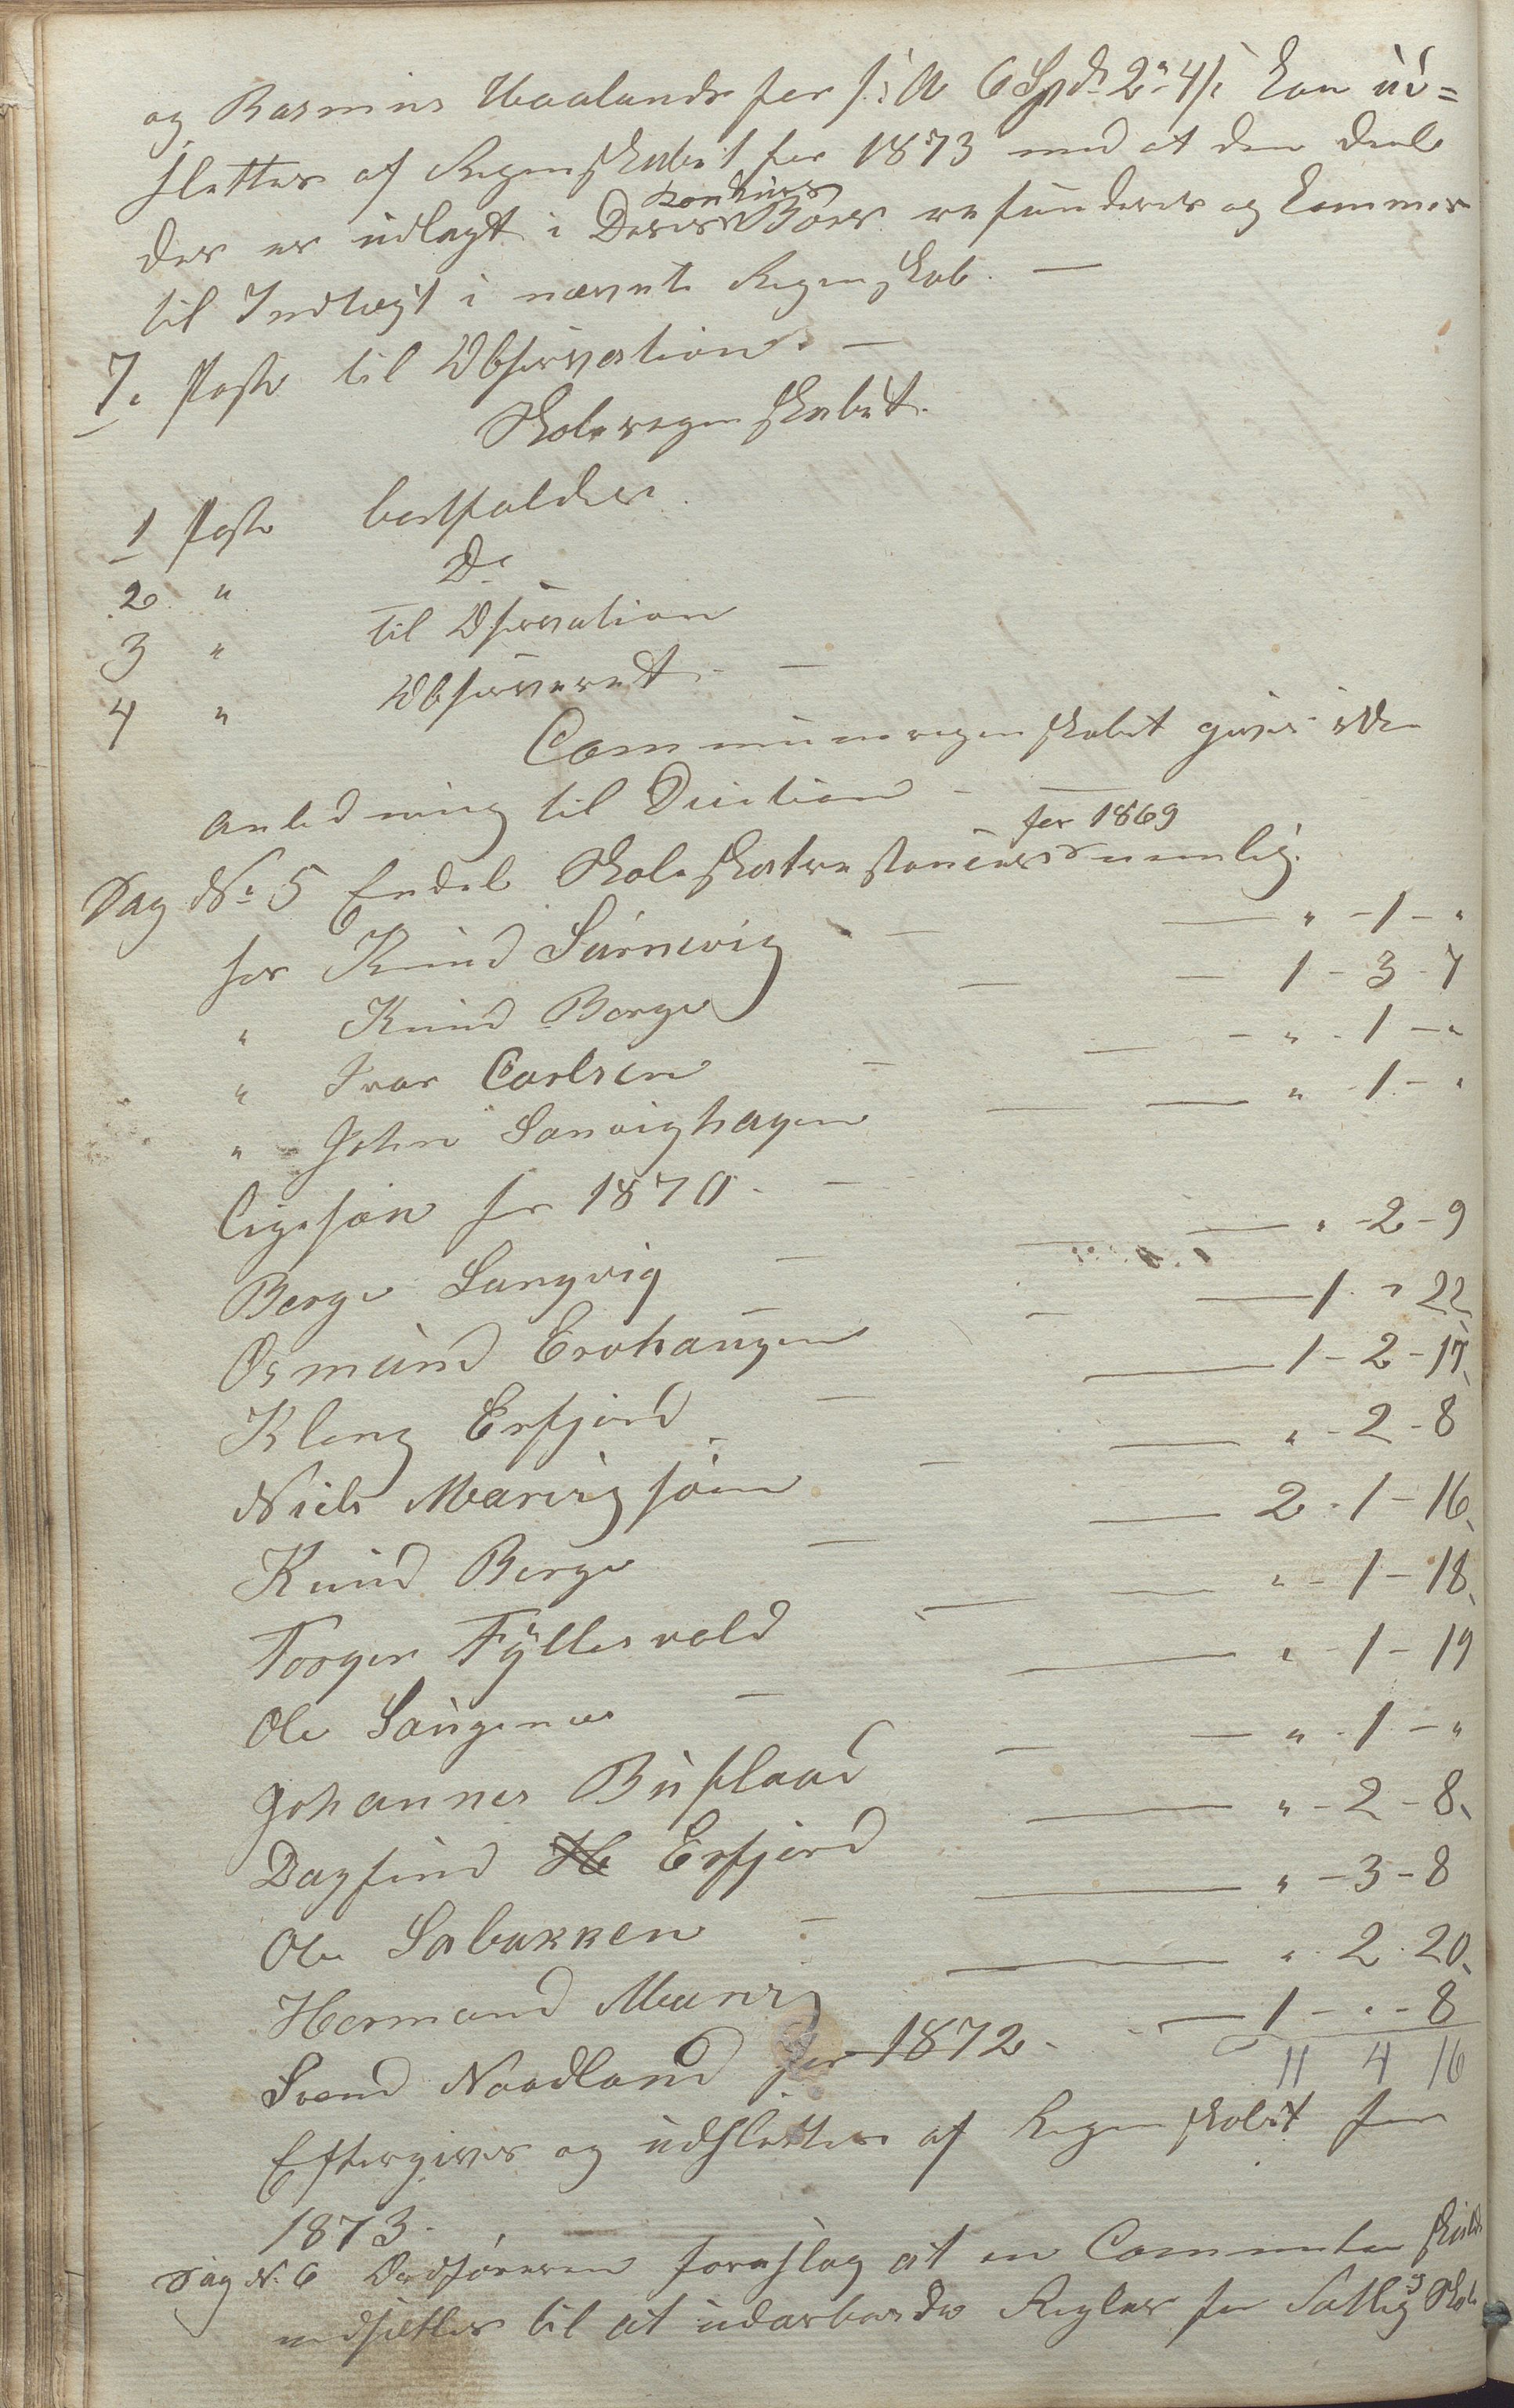 og Rasmus Haaland for 6 Spd 2 " 4 s kan ud=
slettes af Regenskabet for 1873 med at den Deel
der er udlagt i Deres Konkurs Boer refunderes og kommer
til Indtægt i nævnte Regenskab. —
7. Post til Observation. —
Skoleregenskabet.
1 Post bortfalder
2 " Do
3 " til Observation
4 " Observeret. —
Communeregenskabet giver ikke
anledning til Decition —
Sag No 5 Endel Skoleskatrestancer for 1869 nemlig.
hos Knud Sørnevig — — " - 1 - "
" Knud Berge — — 1 - 3 - 7
" Ivar Carlsen — — " - 1 - "
" John Sanvighagen — — " - 1 - "
Ligesaa for 1870. —
Berge Sangvig — — " - 2 - 9
Osmund Erøhaugen — — 1 - " 22
Kleng Erfjord — — 1 - 2 - 17
Niels Marvigsøen — — " - 2 - 8
Knud Berge — — 2 - 1 - 16
Torger Fyllesvold — — " - 1 - 18
Ole Haugenes — — " - 1 - 19
Johannes Buflaad — — " - 1 - "
Dagfind Erfjord — — " - 2 - 8
Ole Løbakken — — " - 3 - 8
Hermand Marvig — " - 2 - 20
Svend Naadland for 1872 — 1 - " - 8
11 4 16
Eftergives og udslettes af Regenskabet for
1873. —
Sag N. 6 Ordføreren foreslog at en Commite skulde
nedsættes til at udarbeide Regler for Fattig og Skole